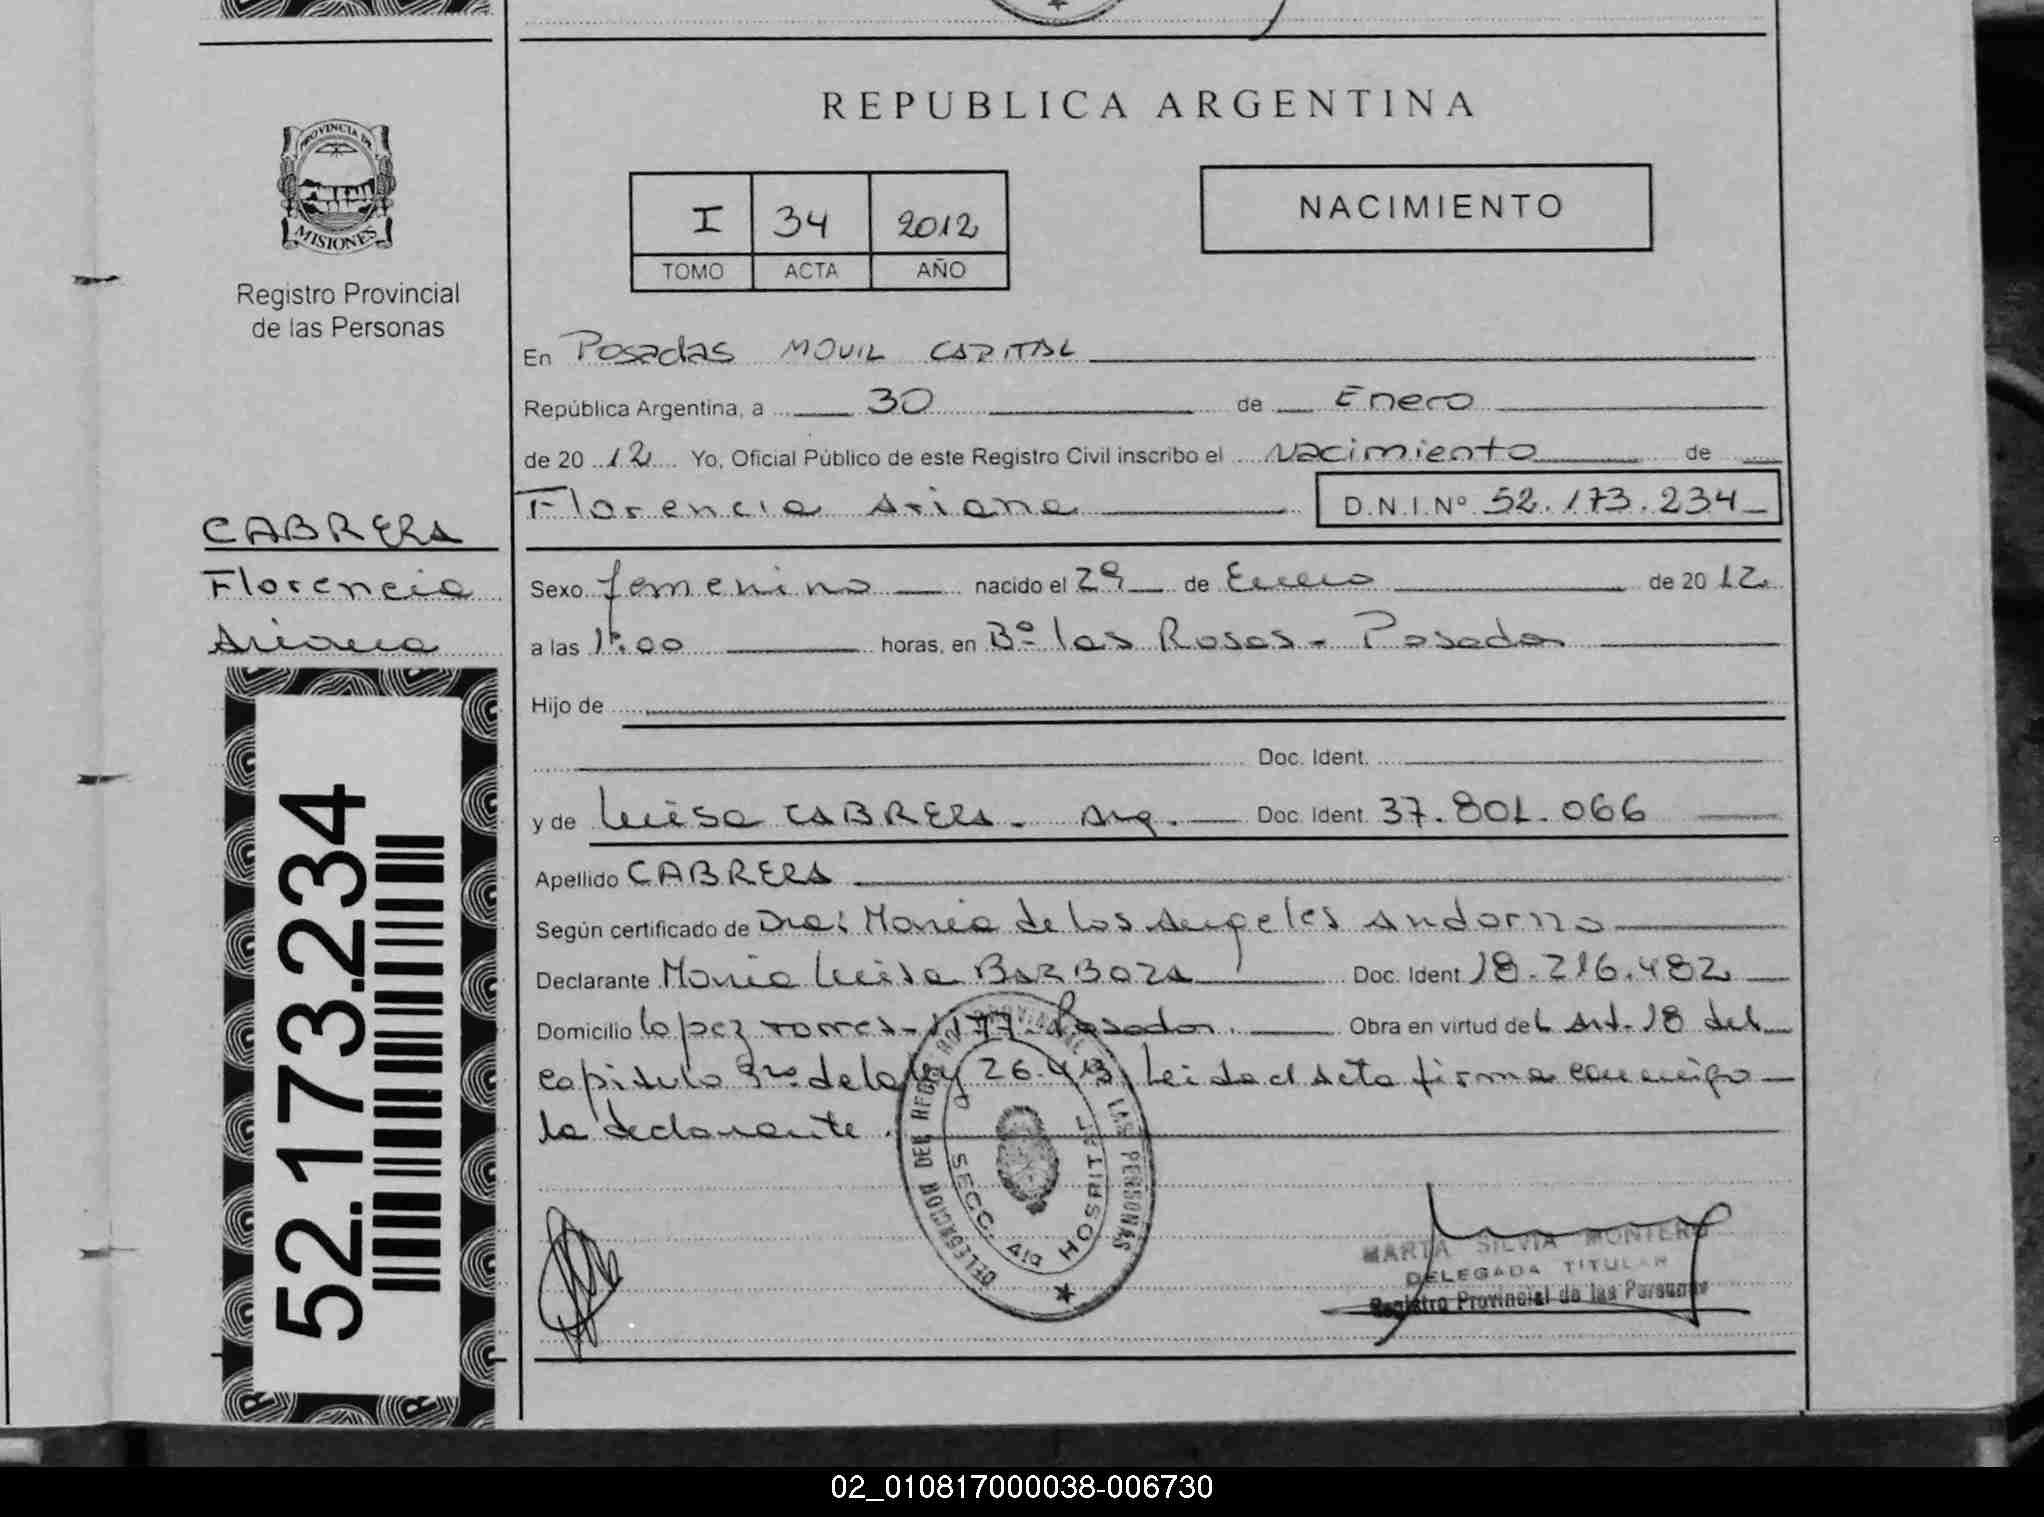 REPUBLICA ARGENTINA
PROVINCIA DE
MISIONES
Registro Provincial
de las Personas
I 34 2012
TOMO ACTA AÑO
NACIMIENTO
En Posadas MOVIL CAPITAL
República Argentina, a 30 de Enero
de 20 12 Yo, Oficial Público de este Registro Civil inscribo el Nacimiento de
Florencia Ariana D.N.I.Nº 52.173.234
CABRERA
Florencia
Ariana
52.173.234
Sexo femenino nacido el 29 de Enero de 20 12
a las horas, en Bº las Rosas - Posadas
Hijo de
Doc. Ident.
y de Luisa CABRERA - Arg. Doc. Ident. 37.801.066
Apellido CABRERA
Según certificado de Dra: Maria de los Angeles Andorno
Declarante Maria Luisa BARBOZA Doc. Ident 18.216.482
Domicilio Lopez Torres - 1177 - Posadas. Obra en virtud del Art. 18 del
capitulo 3ro. de la ley 26.413 Leida el Acta firma conmigo
la declarante.
DELEGACION DEL REGISTRO PROVINCIAL DE LAS PERSONAS
SECC. 4ta HOSPITAL
MARTA SILVIA MONTERO
DELEGADA TITULAR
Registro Provincial de las Personas
02_010817000038-006730